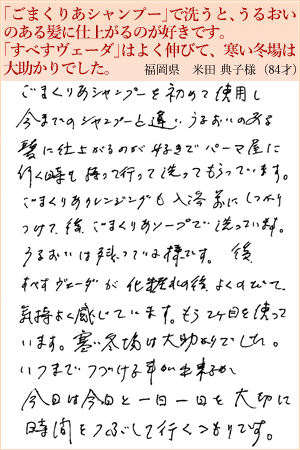 「ごまくりあシャンプー」で洗うと、うるおい
のある髪に仕上がるのが好きです。
「すべすヴェーダ」はよく伸びて、寒い冬場は
大助かりでした。 福岡県 米田 典子様（84才）
ごまくりあシャンプーを初めて使用し
今までのシャンプーと違い、うるおいのある
髪に仕上がるのが好きでパーマ屋に
行く時も持って行って洗ってもらっています。
ごまくりあクレンジングも入浴前にしっかり
つけて、後、ごまくりあソープで洗っています。
うるおいは残っている様です。 後、
すべすヴェーダが化粧の後、よくのびて、
気持よく感じています。もう2ヶ月を使って
います。寒い冬場は大助かりでした。
いつまでつづける事が出来るか
今日は今日と一日一日を大切に
時間をつぶして行くつもりです。